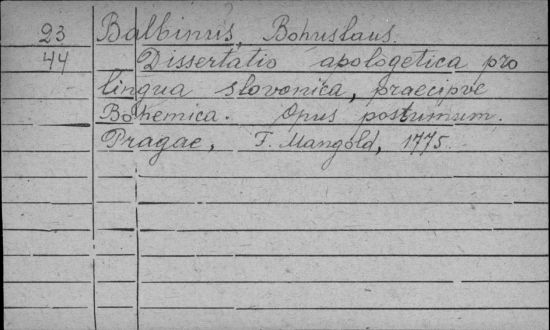 23 Balbinus, Bohuslaus.
44 Dissertatio apologetica pro
lingua slovonica, praecipve
Bohemica. Opus postumum.
Pragae, F. Mangold, 1775.